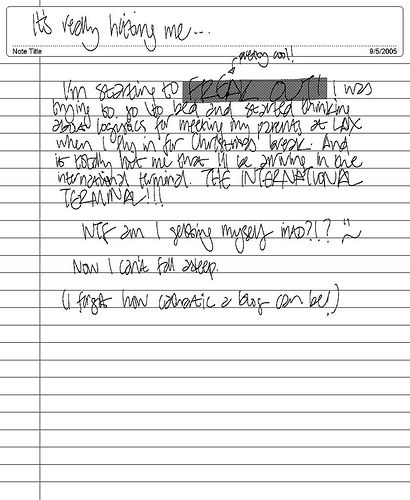 It's really hitting me...
Note Title
9/5/2005
pretty cool!
I'm starting to FREAK OUT! I was
trying to go to bed and started thinking
about logistics for meeting my parents at LAX
when I fly in for Christmas break. And
it totally hit me that I'll be arriving in the
international terminal. THE INTERNATIONAL
TERMINAL!!!
WTF am I getting myself into?!?
Now I can't fall asleep.
(I forgot how cathartic a blog can be!)